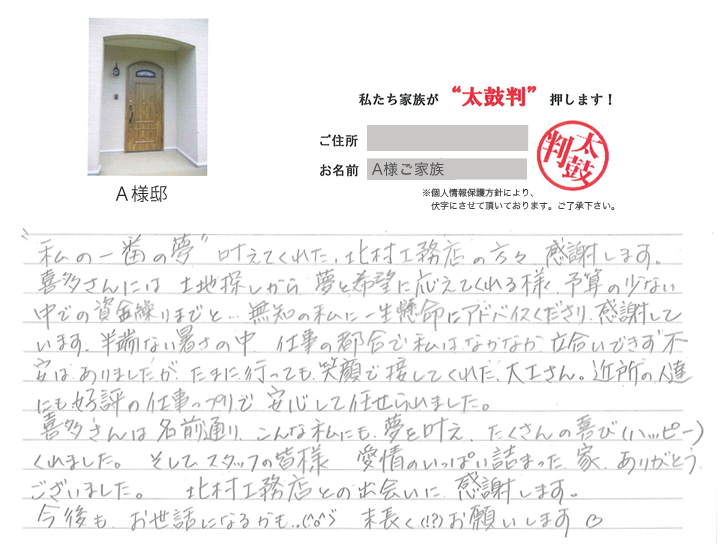 私たち家族が “太鼓判” 押します！
ご住所
お名前 A様ご家族
太鼓判
※個人情報保護方針により、
伏字にさせて頂いております。ご了承下さい。
A様邸
“私の一番の夢” 叶えてくれた、北村工務店の方々 感謝します。
喜多さんには 土地探しから 夢と希望に応えてくれる様、予算の少ない
中での資金繰りまでと… 無知の私に一生懸命にアドバイスくださり、感謝して
います。半端ない暑さの中、仕事の都合で私はなかなか立合いできず不
安はありましたが、たまに行っても、笑顔で接してくれた、大工さん。近所の人達
にも好評の仕事っプリで 安心して任せられました。
喜多さんは名前通り、こんな私にも、夢を叶え、たくさんの喜び(ハッピー)
くれました。そしてスタッフの皆様 愛情のいっぱい詰まった家、ありがとう
ございました。 北村工務店との出会いに 感謝します。
今後も、お世話になるかも..(^o^)ゞ 末長く(!?)お願いします♡